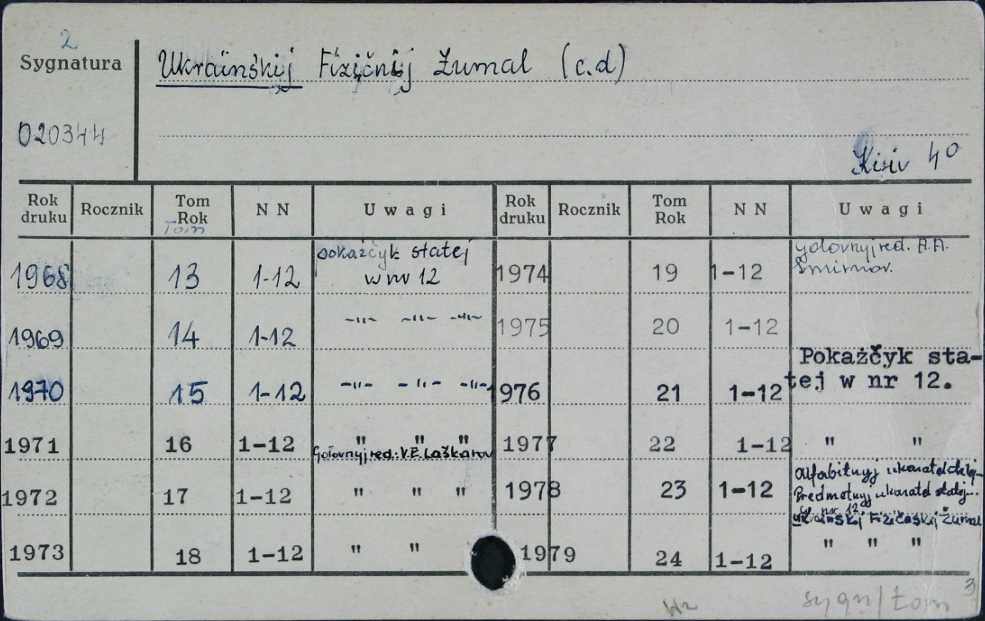 2
Sygnatura
020344
Ukraïnśkij Fizičnij Žurnal (c.d)
Kiïv 4°
Rok druku Rocznik Tom Rok NN Uwagi Rok druku Rocznik Tom Rok NN Uwagi
Tom
1968 13 1-12 pokažčyk statej w nr 12 1974 19 1-12 golovnyj red. A.A. Smirnov.
1969 14 1-12 -"- -"- -"- 1975 20 1-12
1970 15 1-12 -"- -"- -"- 1976 21 1-12 Pokažčyk sta-tej w nr 12.
1971 16 1-12 " " " 1977 22 1-12 " "
golovnyj red.: V.E. Laškarov
1972 17 1-12 " " " 1978 23 1-12 Alfabitnyj
Predmetnyj statej
w nr 12
Ukrainskij Fizičeskij Žurnal
1973 18 1-12 " " 1979 24 1-12 " " "
sygn/tom 3